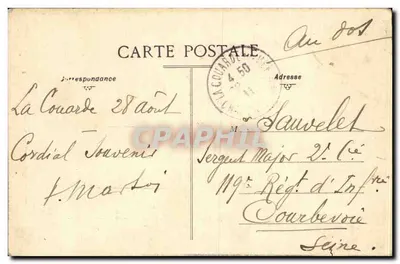 Au dos
CARTE POSTALE
Correspondance
Adresse
LA COUARDE
4 50
11
La Couarde 28 août
Cordial Souvenir
CARTAPHILIE
M. Sauvelet
Sergent Major 2e Cie
119e Régt d'Infrie
Courbevoie
Seine.